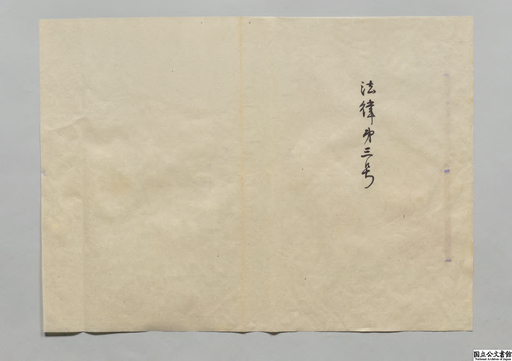 法律第三号
国立公文書館
National Archives of Japan